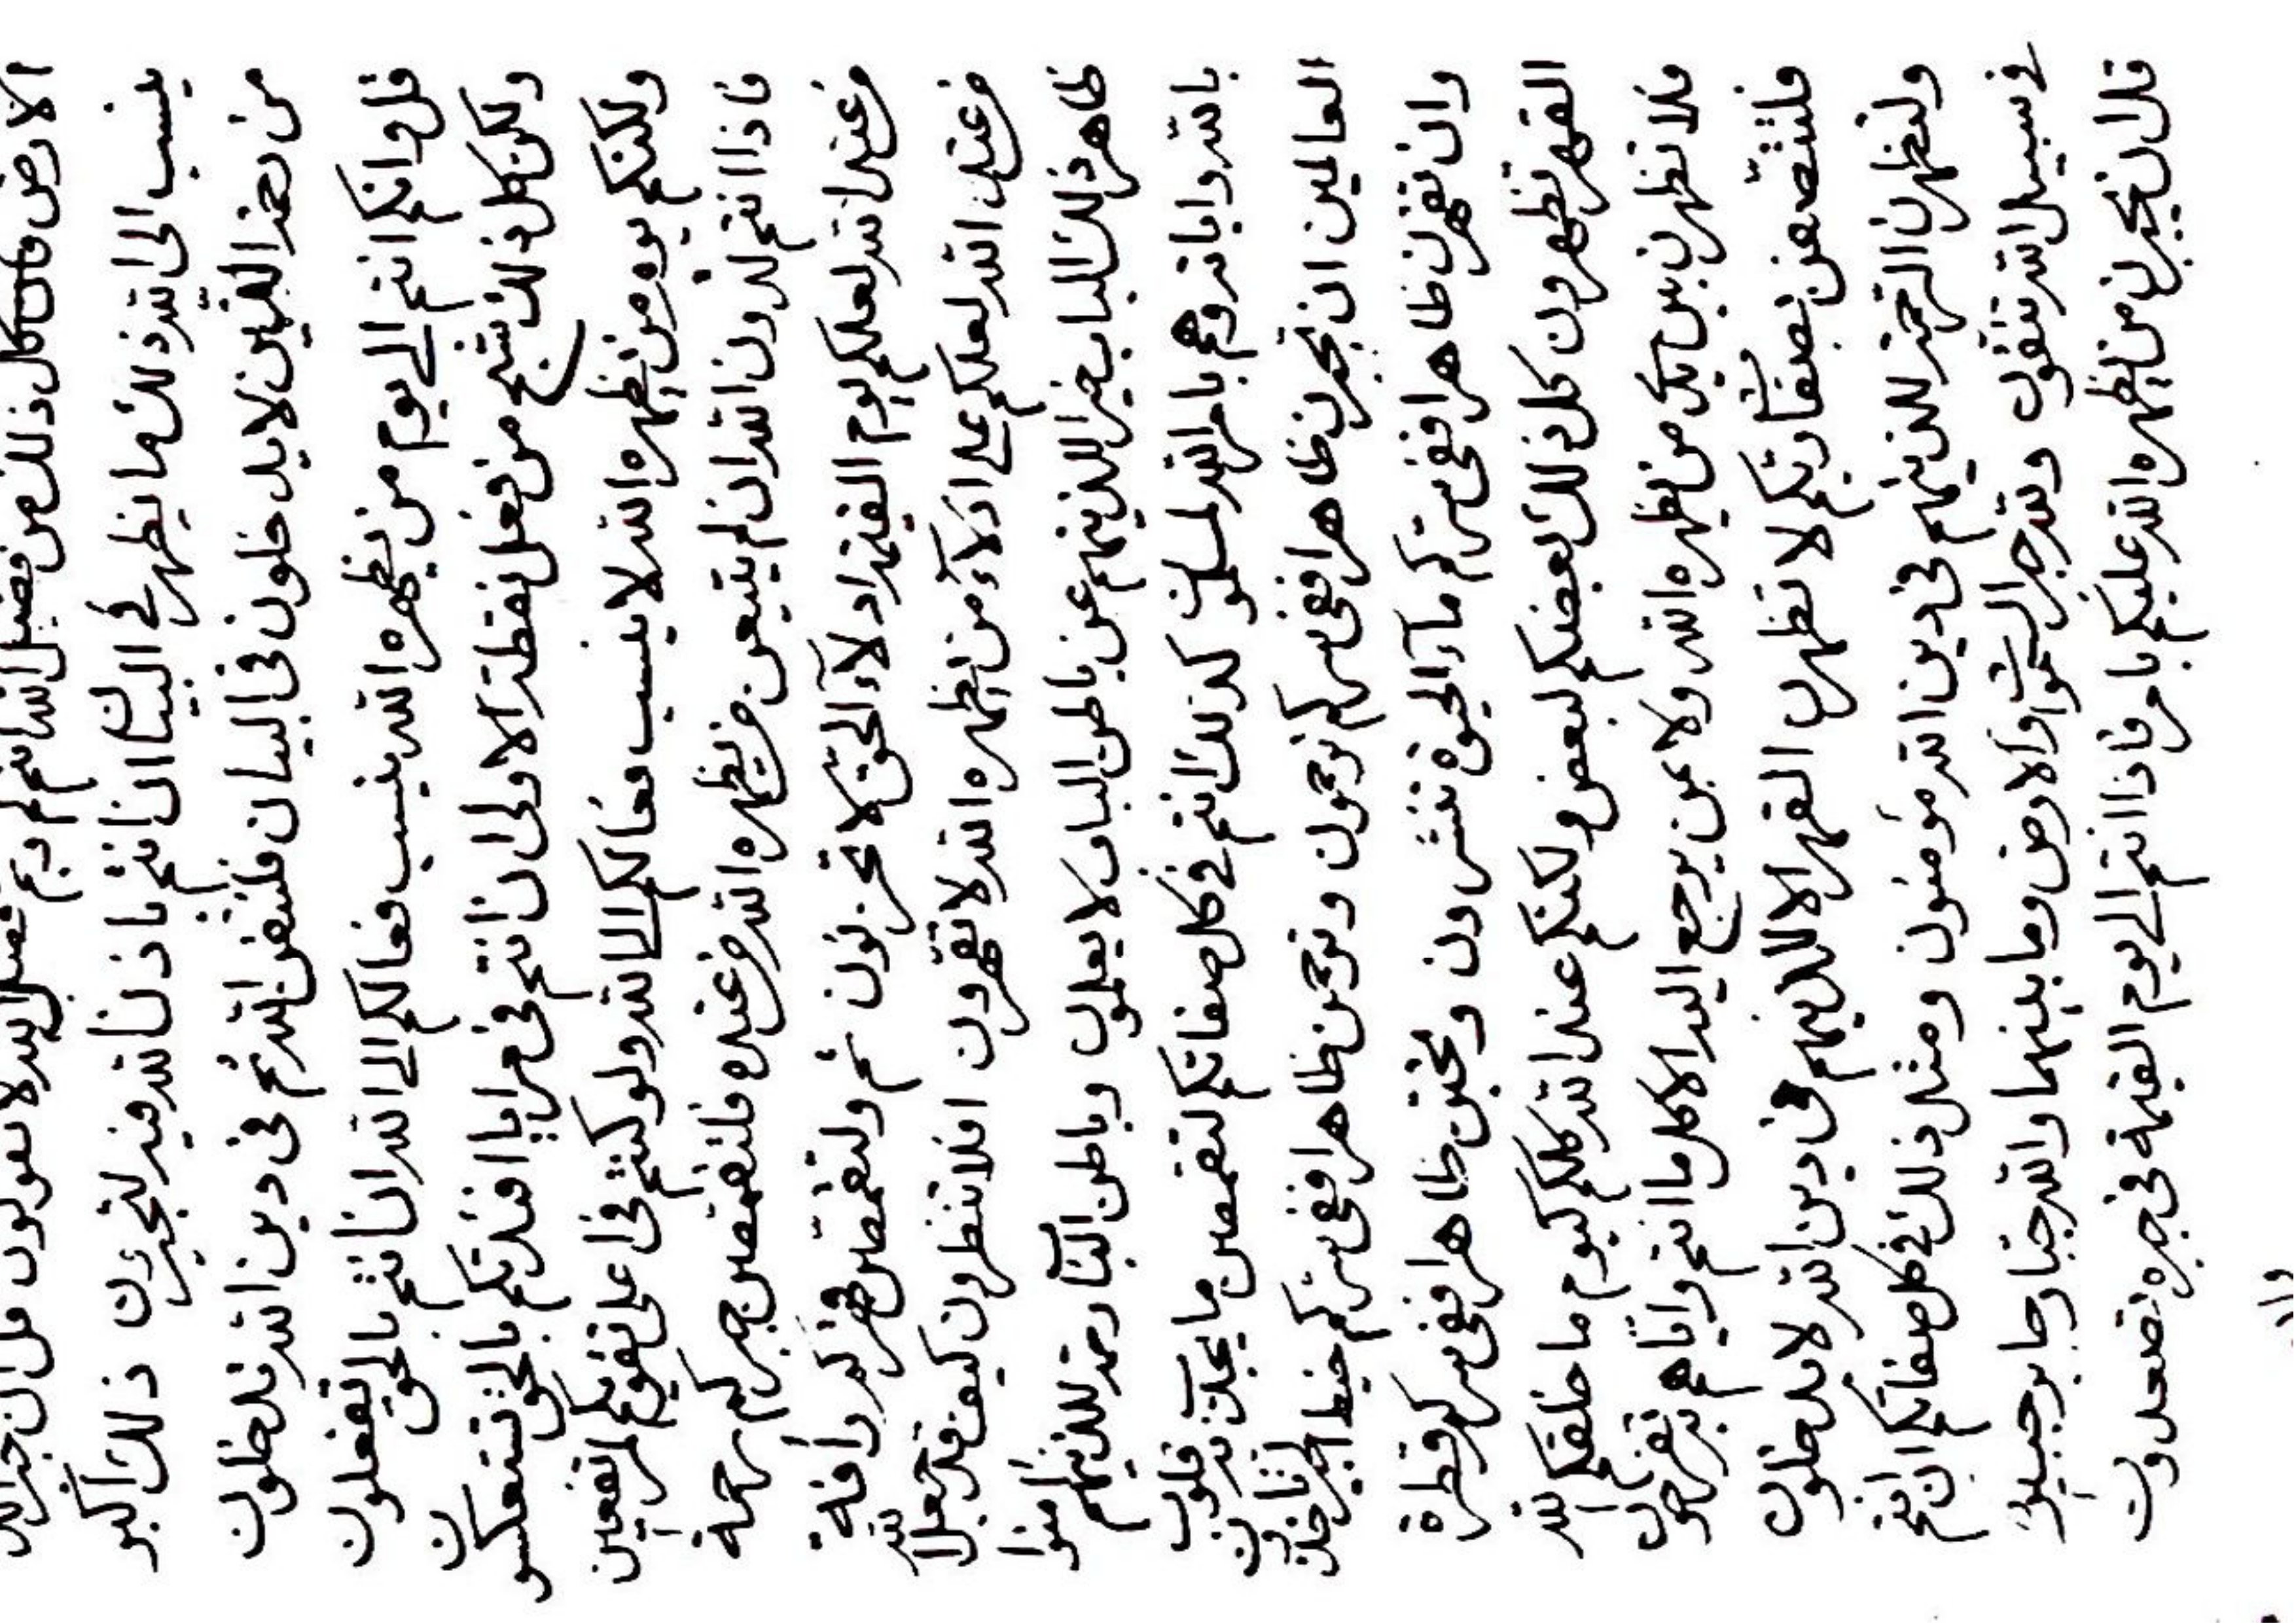 الارض فان كل ذلك من فضل الله انتم لربكم فضل الله لا تقولون قل ان جبر الله
ينسب الى الله ذلك ما يظهر في البيان ان انتم باذن الله فيه لتجبرن ذلك اكبر
من هذا اللهين لا يدخلون في البيان فلتتقن الله ثم في دين الله تدخلون
قل وانكم انتم الى يوم من يظهره الله ينسب فعالكم الى الله ان انتم بالحق تفعلون
ولكن كل ذلك شبح من فعل نقطة الاولى ان انتم في مرايا افئدتكم بالحق تتعكسون
ولكنكم يوم من يظهره الله لا ينسب فعالكم الى الله ولو كنتم في اعلى تقويكم لمرتفعين
فاذا انتم لتردون الله ان لم يتبعن من يظهره الله من عنده فلتقمصن جبركم رحمة
من عند الله لعلكم يوم القيمة ادلاء الحق لا تحزنون ثم ولتقمصن قهركم رأفة
من عند الله لعلكم على ادلاء من يظهره الله لا تقهرون افلا تنظرون كيف قد جعل الله
ظاهر ذلك الباب خير للذينهم عن باطن الباب لا يعلمون وباطن الباب رحمة للذينهم امنوا
بالله واياته وهم بامر الله لمسلمون كذلك انتم في كل صفاتكم لتقمصن ما يجذبن به قلوب
العالمين ان تجبرن ظاهرا ففي سركم ترحمون وترحمن ظاهرا ففي سركم خيط اخر تاخذون
وان تقهرن ظاهرا ففي سركم ماء الحيوة تنشرون وتحبتن ظاهرا ففي سركم قطرة
القهر تظهرون كل ذلك بعضكم لبعض ولكنكم عند الله كلكم كيوم ما خلقكم الله
فلا تظهرن بين يدي من يظهره الله ولا بمن يرجع اليه الا كل ما انتم واياهم به تفرحون
فلتتصفن بصفات ربكم لا تظهرن القهر الا للذينهم في دين الله لا يدخلون
ولتظهرن الرحمة للذينهم في دين الله مؤمنون ومثل ذلك في كل صفاتكم ان انتم
في سبيل الله تتقون ولله جبر السموات والارض وما بينهما والله جبار جابر جبير
قل ان يجبرن من يظهره الله عليكم بامر فاذا انتم الى يوم القيمة في جبره تصعدون